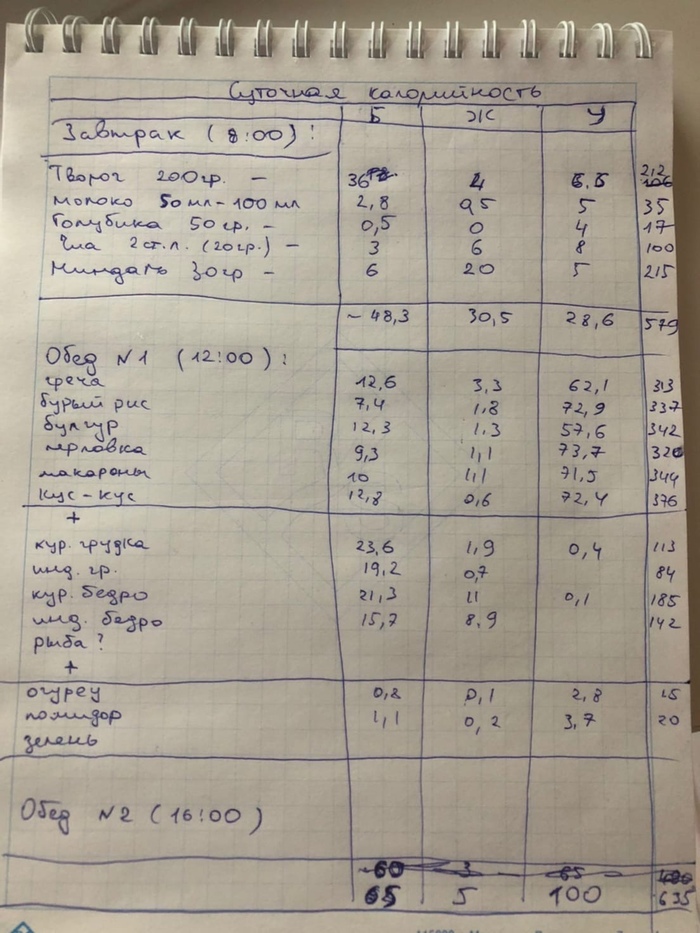 Суточная калорийность
Б Ж У
Завтрак (8:00):
Творог 200гр. – 36 4 6.6 212
молоко 50мл-100мл 2,8 0,5 5 35
Голубика 50гр. – 0,5 0 4 17
Чиа 2ст.л. (20гр.) – 3 6 8 100
Миндаль 30гр – 6 20 5 215
~48,3 30,5 28,6 579
Обед N1 (12:00):
греча 12,6 3,3 62,1 313
бурый рис 7,4 1,8 72,9 337
булгур 12,3 1.3 57,6 342
перловка 9,3 1,1 73,7 320
макароны 10 1,1 71,5 344
кус-кус 12,8 0,6 72,4 376
+
кур. грудка 23,6 1,9 0,4 113
инд. гр. 19,2 0,7 84
кур. бедро 21,3 11 0,1 185
инд. бедро 15,7 8.9 142
рыба?
+
огурец 0,8 0,1 2,8 15
помидор 1,1 0,2 3,7 20
зелень
Обед N2 (16:00)
~60 3 85
65 5 100 635